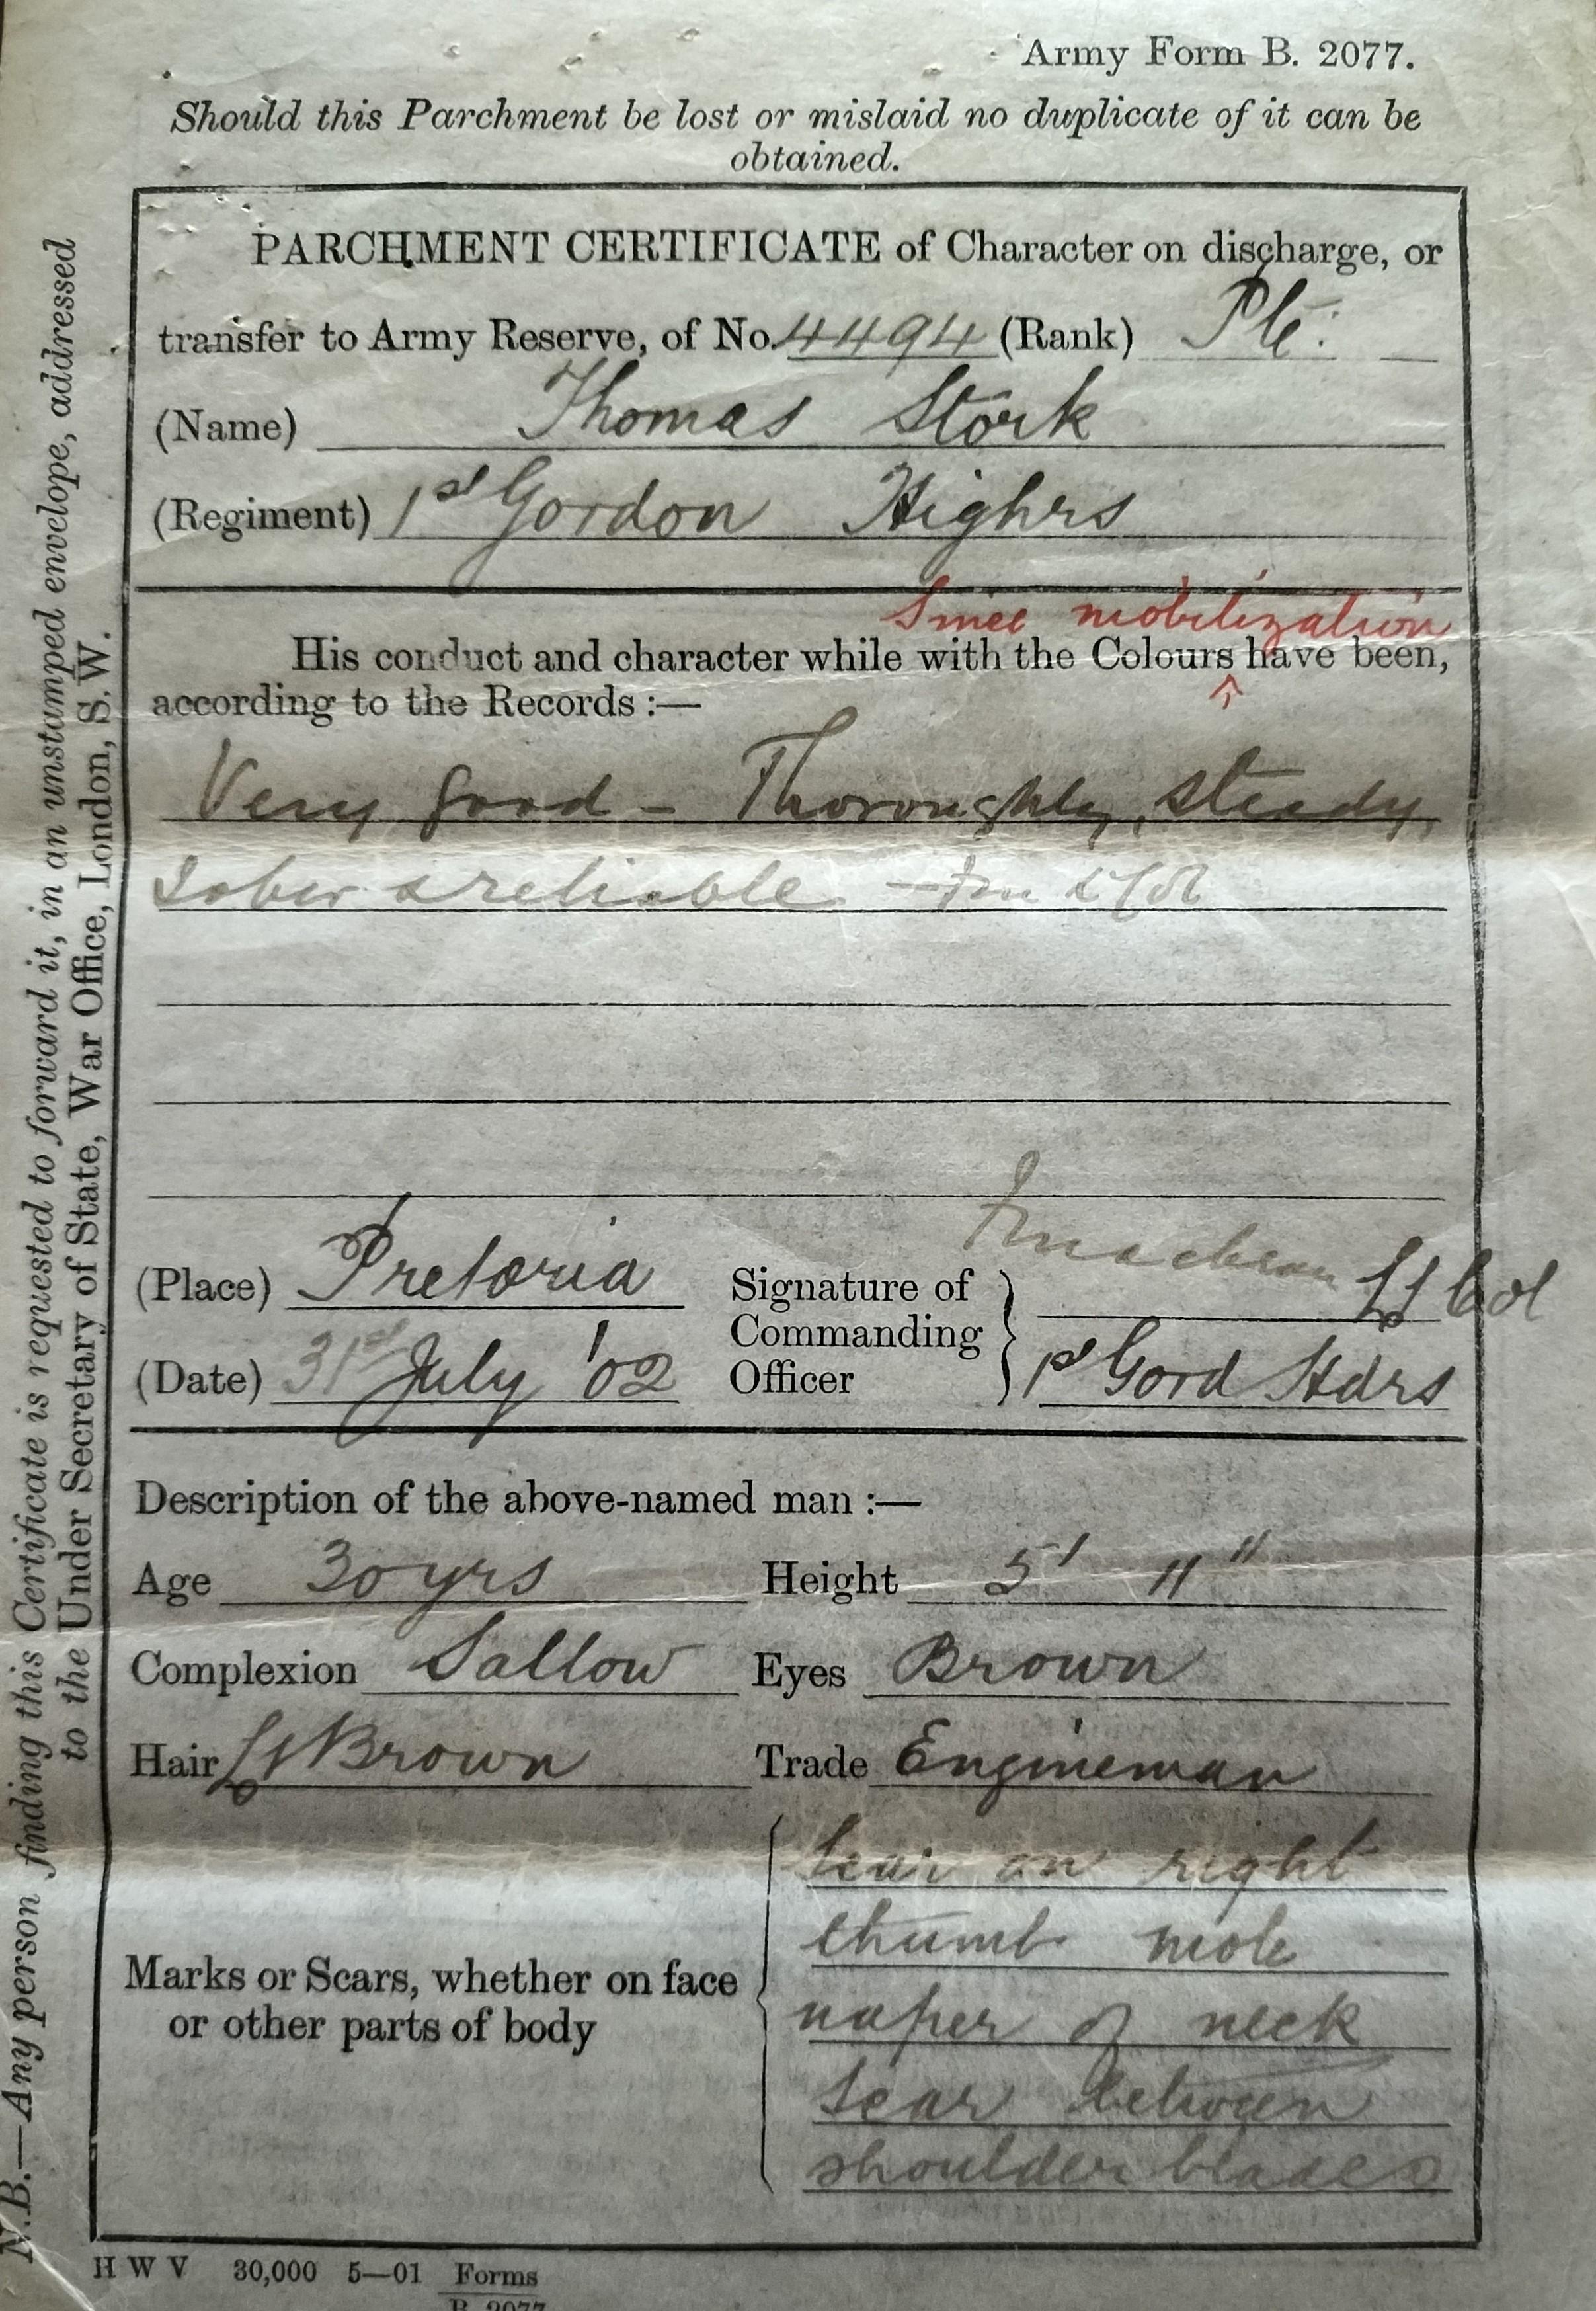 Army Form B. 2077.
Should this Parchment be lost or mislaid no duplicate of it can be
obtained.
PARCHMENT CERTIFICATE of Character on discharge, or
transfer to Army Reserve, of No. 4494 (Rank) Pte.
(Name) Thomas Stork
(Regiment) 1st Gordon Highrs
Since mobilization
His conduct and character while with the Colours ^ have been,
according to the Records :—
Very good - Thoroughly, steady,
sober & reliable
(Place) Pretoria
Signature of
Commanding
Officer
Macbean Lt Col
1st Gord Hdrs
(Date) 31st July '02
Description of the above-named man :—
Age 30 yrs Height 5' 11"
Complexion Sallow Eyes Brown
Hair Lt Brown Trade Engineman
Marks or Scars, whether on face
or other parts of body
Scar on right
thumb mole
naper of neck
scar between
shoulder blades
H W V 30,000 5—01 Forms
B 2077
N.B.—Any person finding this Certificate is requested to forward it, in an unstamped envelope, addressed
to the Under Secretary of State, War Office, London, S.W.